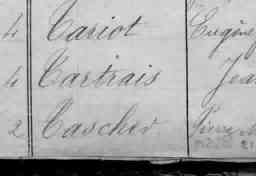 4 Tariot Eugène
4 Tartrais Jea
2 Tascher Pierre